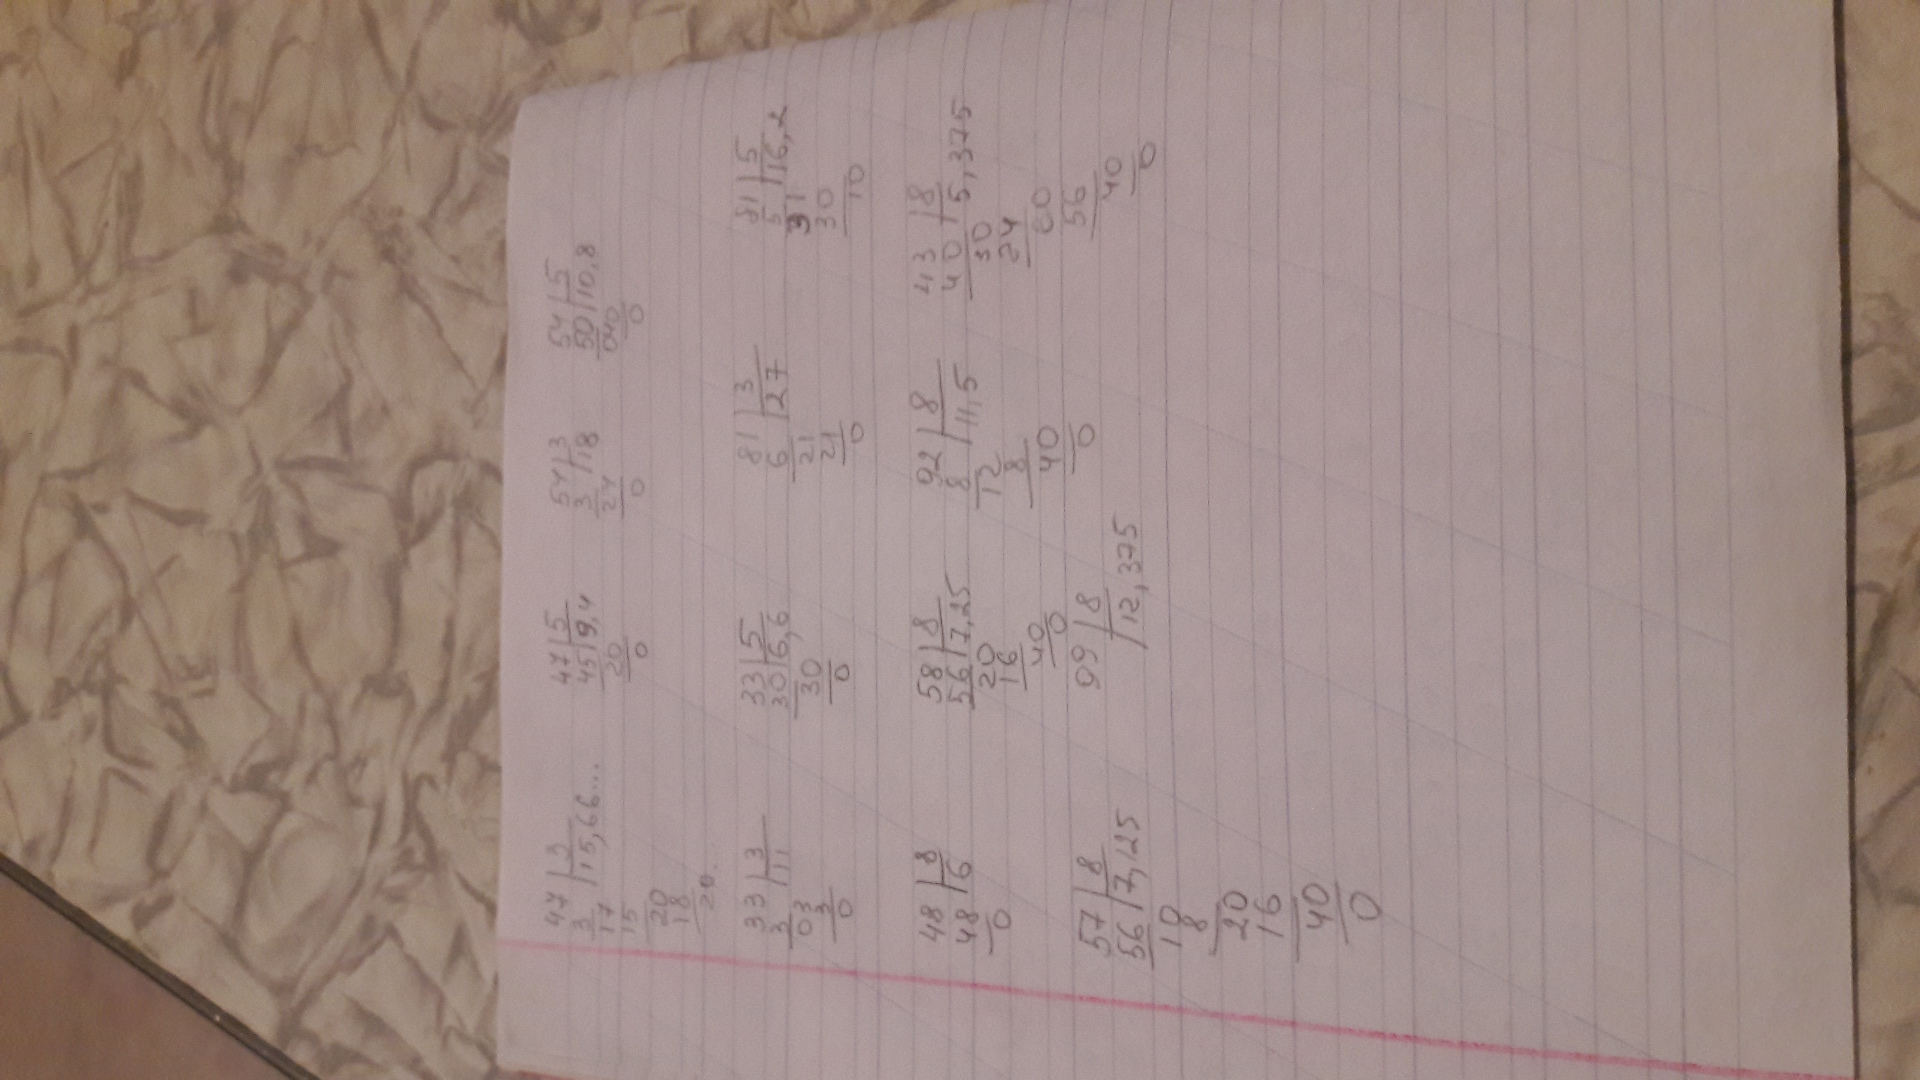 47 | 3    47 | 5    54 | 3    54 | 5
3 | 15,66...    45 | 9,4    3 | 18    50 | 10,8
17    20    24    040
15    0    0    0
20
18
20.
33 | 3    33 | 5    81 | 3    81 | 5
3 | 11    30 | 6,6    6 | 27    5 | 16,2
03    30    21    31
3    0    21    30
0    0    10
48 | 8    58 | 8    92 | 8    43 | 8
48 | 6    56 | 7,25    8 | 11,5    40 | 5,375
0    20    12    30
16    8    24
40    40    60
0    0    56
40
0
57 | 8    99 | 8
56 | 7,125    | 12,375
10
8
20
16
40
0